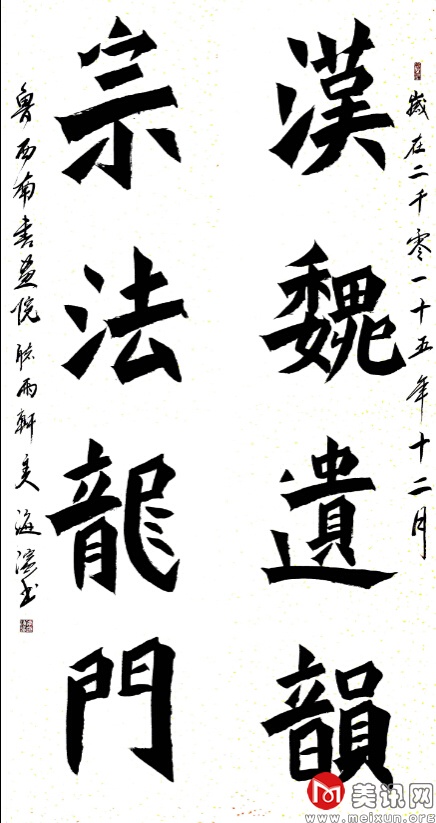 歲在二千零一十五年十二月
漢魏遺韻
宗法龍門
魯西南書畫院聽雨軒吴海濱書
美讯网
www.meixun.org